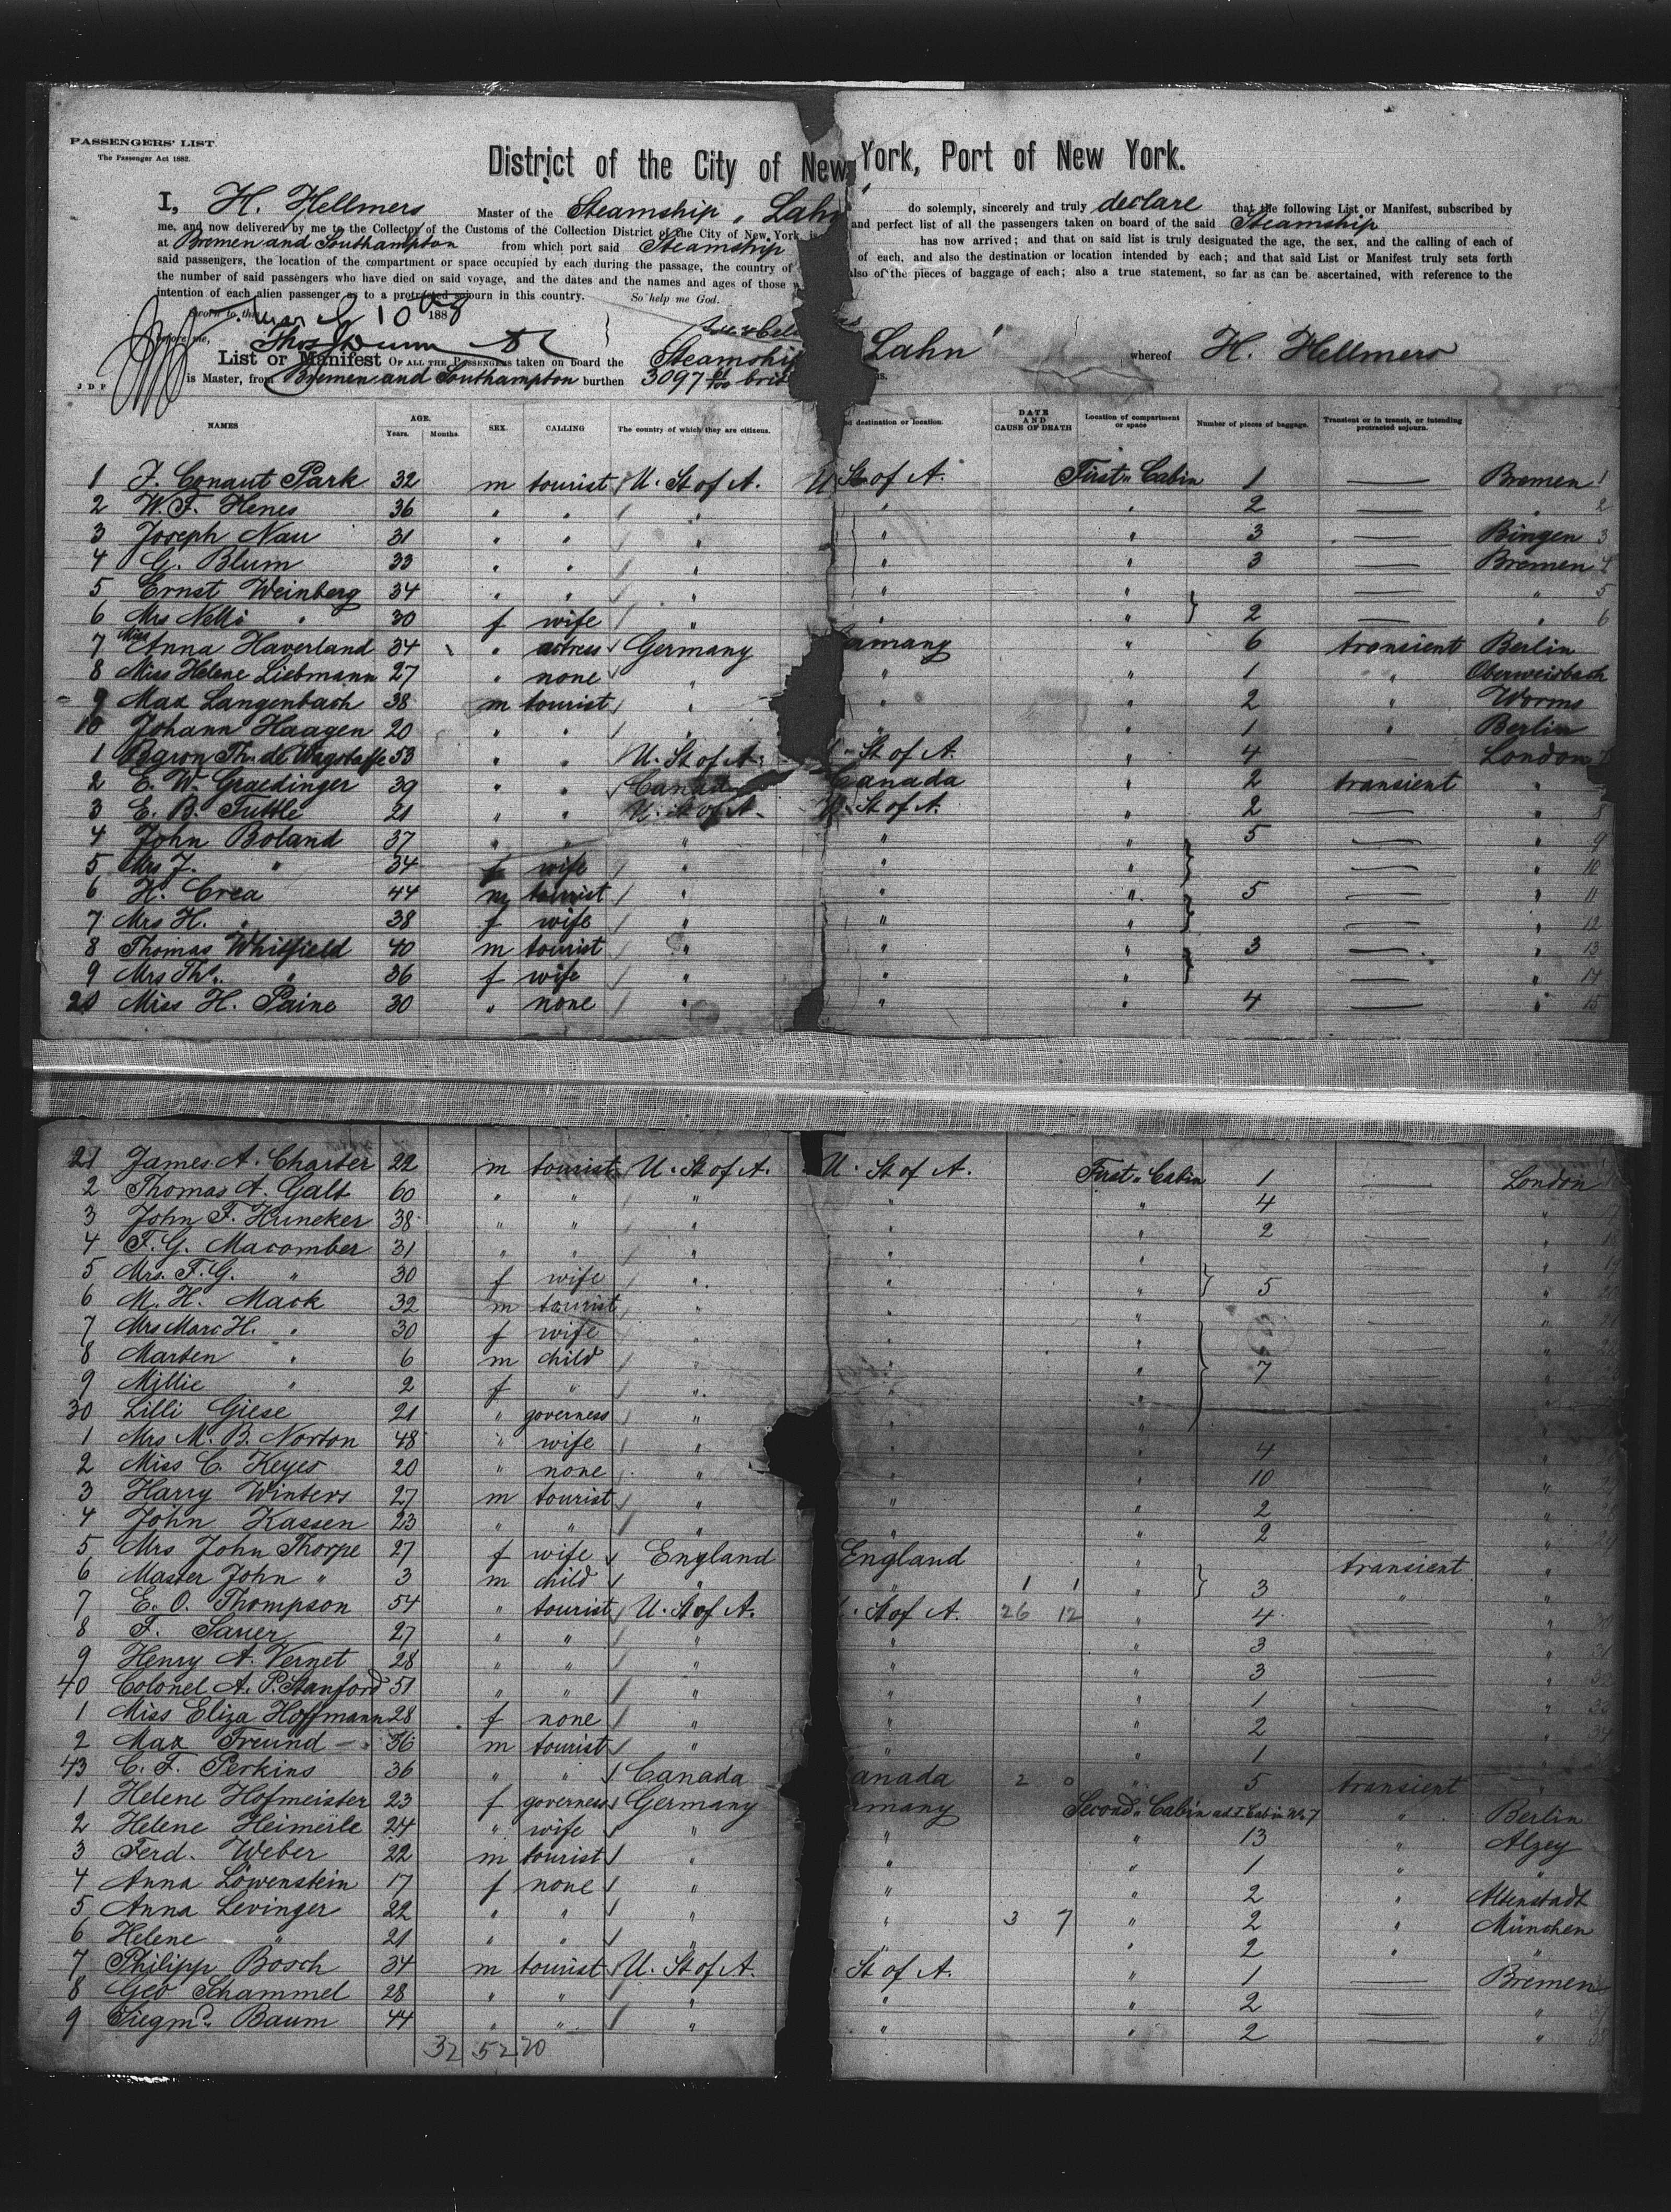 PASSENGERS' LIST.
The Passenger Act 1882.
District of the City of New York, Port of New York.
I, H. Hellmers Master of the Steamship „ Lahn do solemnly, sincerely and truly declare that the following List or Manifest, subscribed by
me, and now delivered by me to the Collector of the Customs of the Collection District of the City of New York, is and perfect list of all the passengers taken on board of the said Steamship
at Bremen and Southampton from which port said Steamship has now arrived; and that on said list is truly designated the age, the sex, and the calling of each of
said passengers, the location of the compartment or space occupied by each during the passage, the country of of each, and also the destination or location intended by each; and that said List or Manifest truly sets forth
the number of said passengers who have died on said voyage, and the dates and the names and ages of those also of the pieces of baggage of each; also a true statement, so far as can be ascertained, with reference to the
intention of each alien passenger as to a protracted sojourn in this country. So help me God.
Sworn to this March 10 1888
before me,
List or Manifest OF ALL THE PASSENGERS taken on board the Steamship Lahn whereof H. Hellmers
J D P is Master, from Bremen and Southampton burthen 3097
NAMES AGE. Years. Months. SEX. CALLING The country of which they are citizens. destination or location. DATE AND CAUSE OF DEATH Location of compartment or space Number of pieces of baggage. Transient or in transit, or intending protracted sojourn.
1 J. Conaut Park 32 m tourist U. St of A. U St of A. First „ Cabin 1 — Bremen 1
2 W. F. Henes 36 " " " " " 2 — " 2
3 Joseph Nau 31 " " " " " 3 — Bingen 3
4 G. Blum 33 " " " " " 3 — Bremen 4
5 Ernst Weinberg 34 " " " " " — " 5
6 Mrs Nelli " 30 f wife " " " 2 — " 6
7 Miss Anna Haverland 34 " actress Germany Germany " 6 transient Berlin
8 Miss Helene Liebmann 27 " none " " " 1 " Oberweisbach
9 Max Langenbach 38 m tourist " " " 2 " Worms
10 Johann Haagen 20 " " " " " 1 " Berlin
1 Baron Th. de Wagstaffe 53 " " U. St of A. St of A. " 4 London 7
2 E. W. Graedinger 39 " " Canada Canada " 2 transient "
3 E. B. Tuttle 21 " " U. St of A. U. St of A. " 2 — " 8
4 John Boland 37 " " " " " 5 — " 9
5 Mrs J. " 34 f wife " " " — " 10
6 H. Crea 44 m tourist " " " 5 — " 11
7 Mrs H. " 38 f wife " " " — " 12
8 Thomas Whitfield 40 m tourist " " " 3 — " 13
9 Mrs Ths. " 36 f wife " " " — " 14
20 Miss H. Paine 30 " none " " " 4 — " 15
21 James A. Charter 22 m tourist U. St of A. U. St of A. First „ Cabin 1 — London
2 Thomas A. Galt 60 " " " " " 4 — "
3 John F. Huneker 38 " " " " " 2 — "
4 F. G. Macomber 31 " " " " " — "
5 Mrs. F. G. " 30 f wife " " " 5 — "
6 M. H. Mack 32 m tourist " " " — "
7 Mrs Marc H. " 30 f wife " " " — "
8 Marten " 6 m child " " " 7 — "
9 Millie " 2 f " " " " — "
30 Lilli Giese 21 " governess " " " — "
1 Mrs M. B. Norton 48 " wife " " " 4 — "
2 Miss C. Keyes 20 " none " " " 10 — "
3 Harry Winters 27 m tourist " " " 2 — "
4 John Kassen 23 " " " " " 2 — "
5 Mrs John Thorpe 27 f wife England England " transient "
6 Master John " 3 m child " " 1 1 " 3 " "
7 E. O. Thompson 54 " tourist U. St of A. St of A. 26 12 " 4 — "
8 F. Sauer 27 " " " " " 3 — " 31
9 Henry A. Vernet 28 " " " " " 3 — " 32
40 Colonel A. P. Stanford 51 " " " " " 1 — " 33
1 Miss Eliza Hoffmann 28 f none " " " 2 — " 34
2 Max Freund 36 m tourist " " " 1 — "
43 C. F. Perkins 36 " " Canada Canada 2 0 " 5 transient "
1 Helene Hofmeister 23 f governess Germany Germany Second „ Cabin ad I. Cabin No 7 " Berlin
2 Helene Heimerle 24 " wife " " " 13 " Alzey
3 Ferd. Weber 22 m tourist " " " 1 " "
4 Anna Löwenstein 17 f none " " " 2 " Altenstadt
5 Anna Levinger 22 " " " " 3 7 " 2 " München
6 Helene " 21 " " " " " 2 " "
7 Philipp Bosch 34 m tourist U. St of A. St of A. " 1 — Bremen
8 Geo Schammel 28 " " " " " 2 — " 37
9 Siegmd. Baum 44 " " " " " 2 — " 38
32 52 20